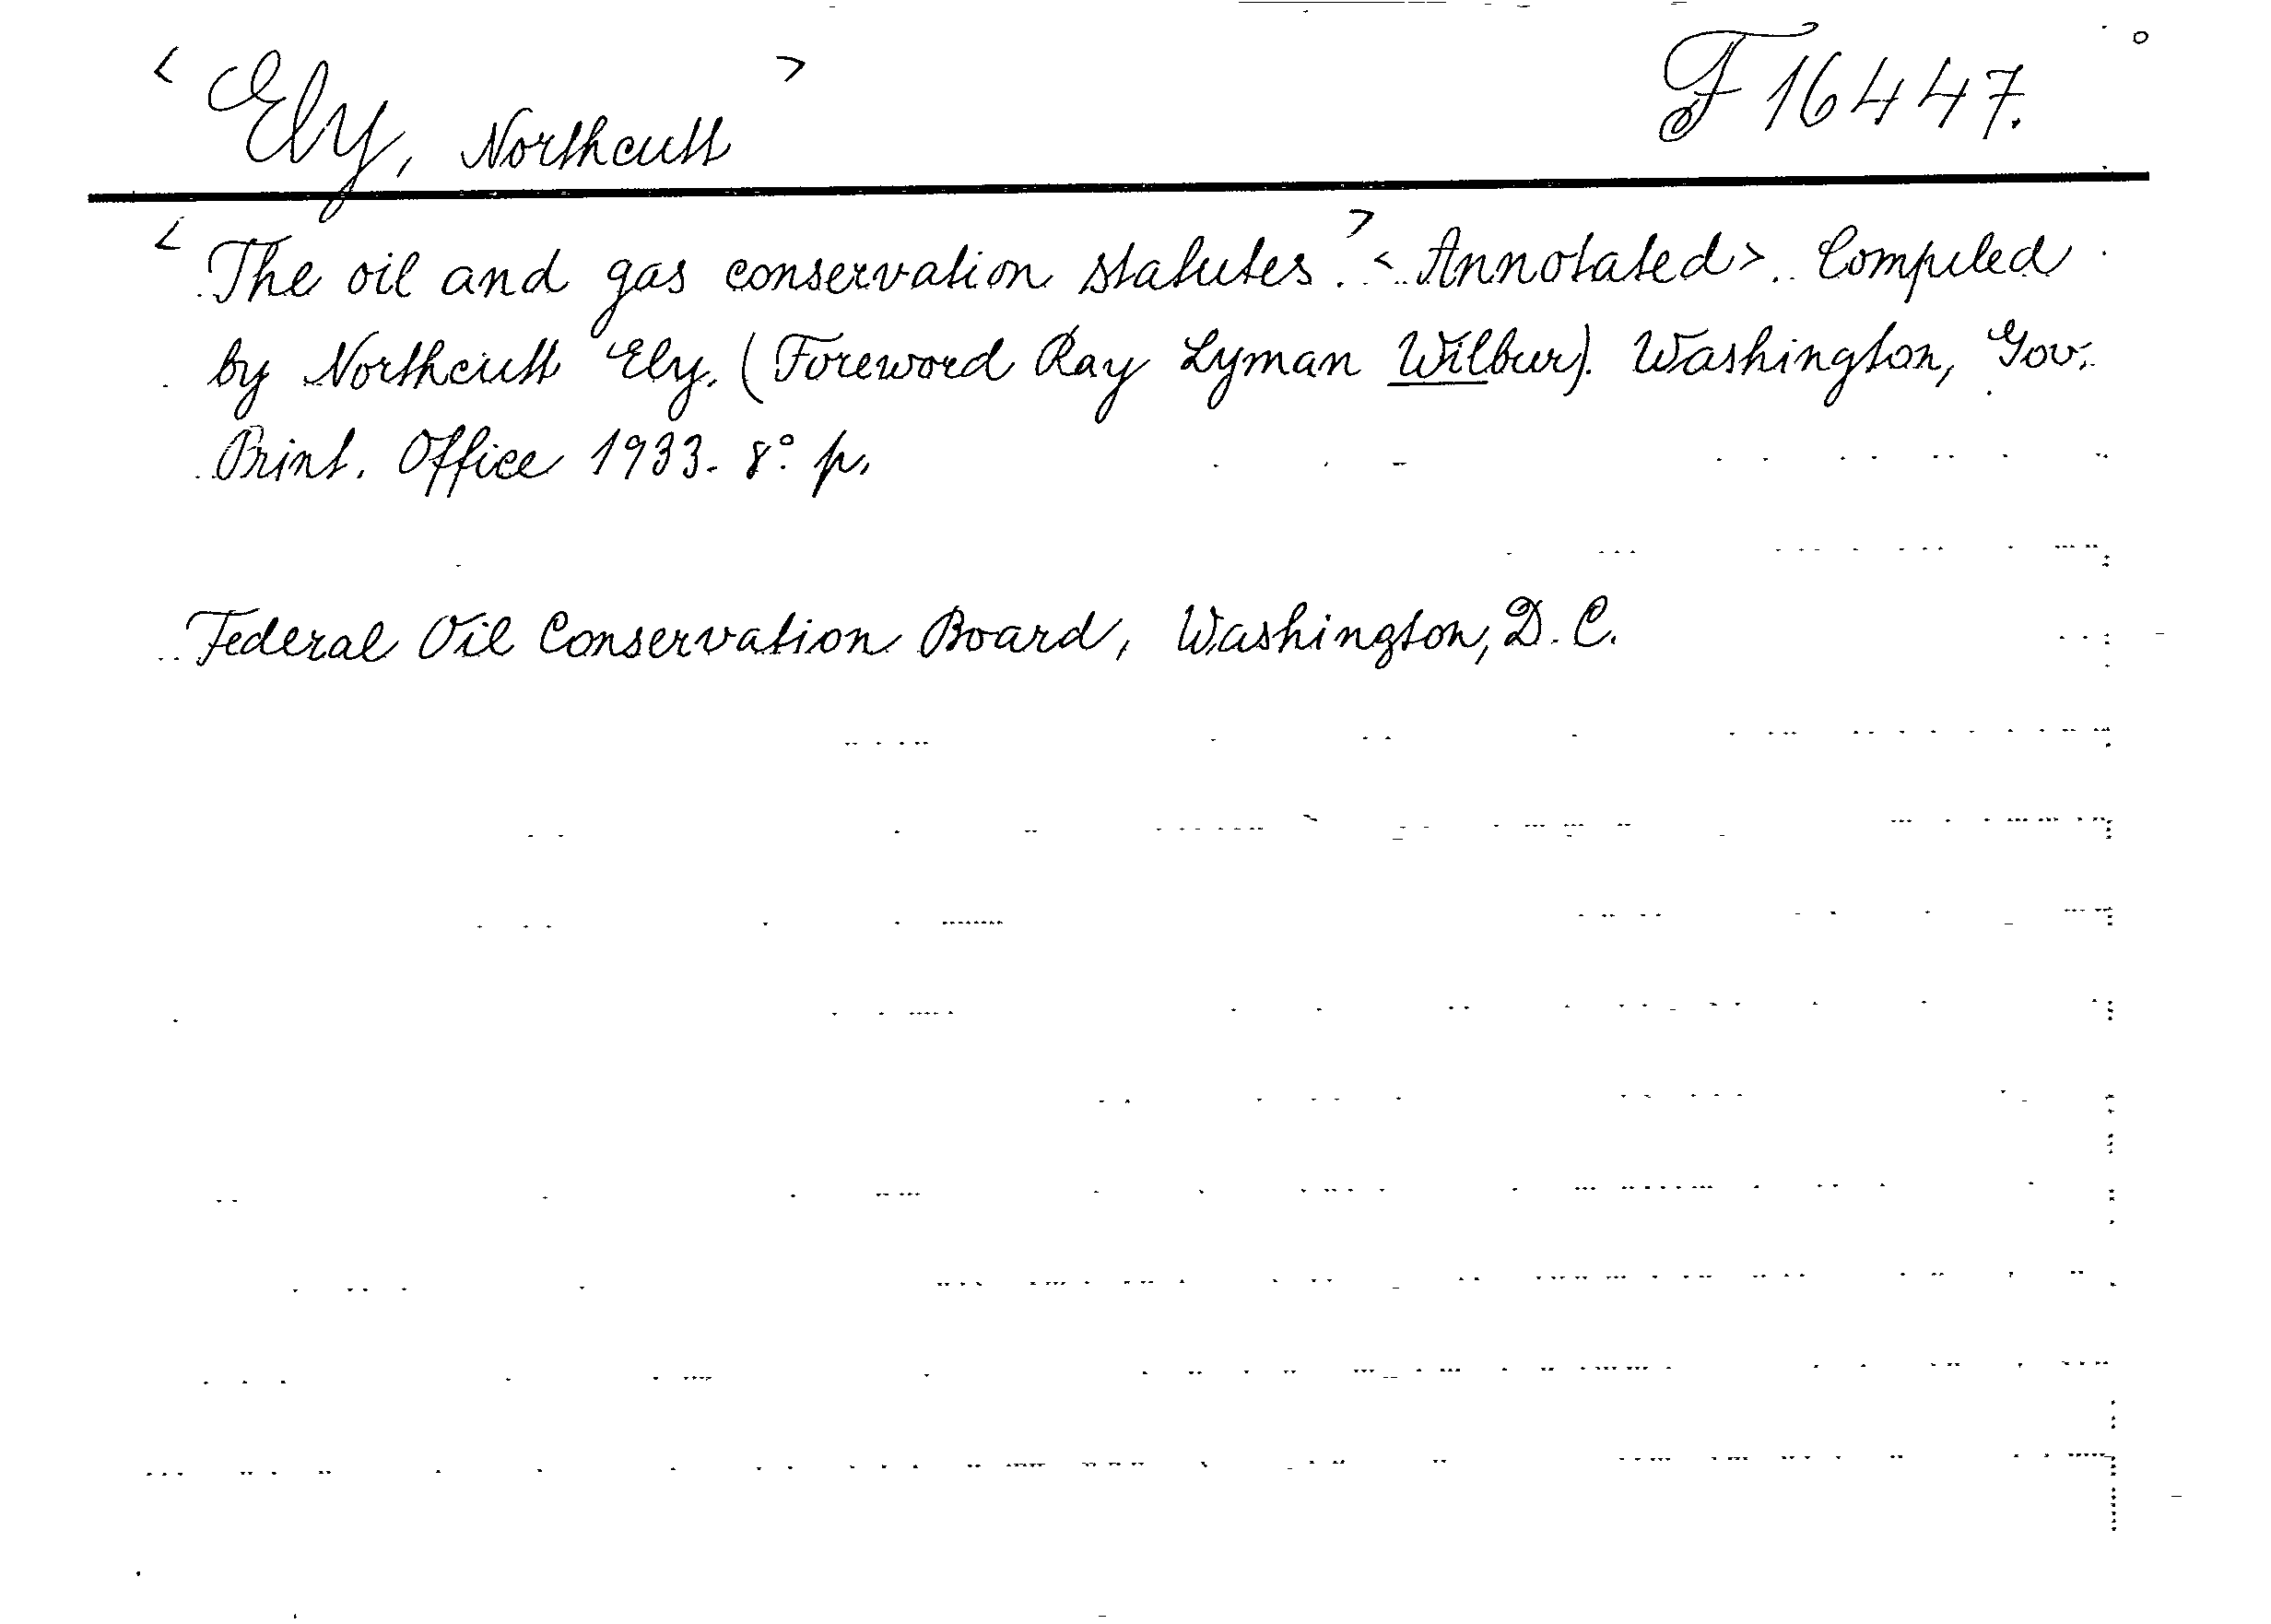 < Ely, Northcutt > F 16447.
< The oil and gas conservation statutes. > < Annotated >. Compiled
by Northcutt Ely. (Foreword Ray Lyman Wilbur). Washington, Gov.
Print. Office 1933. 8° p.
Federal Oil Conservation Board, Washington, D. C.